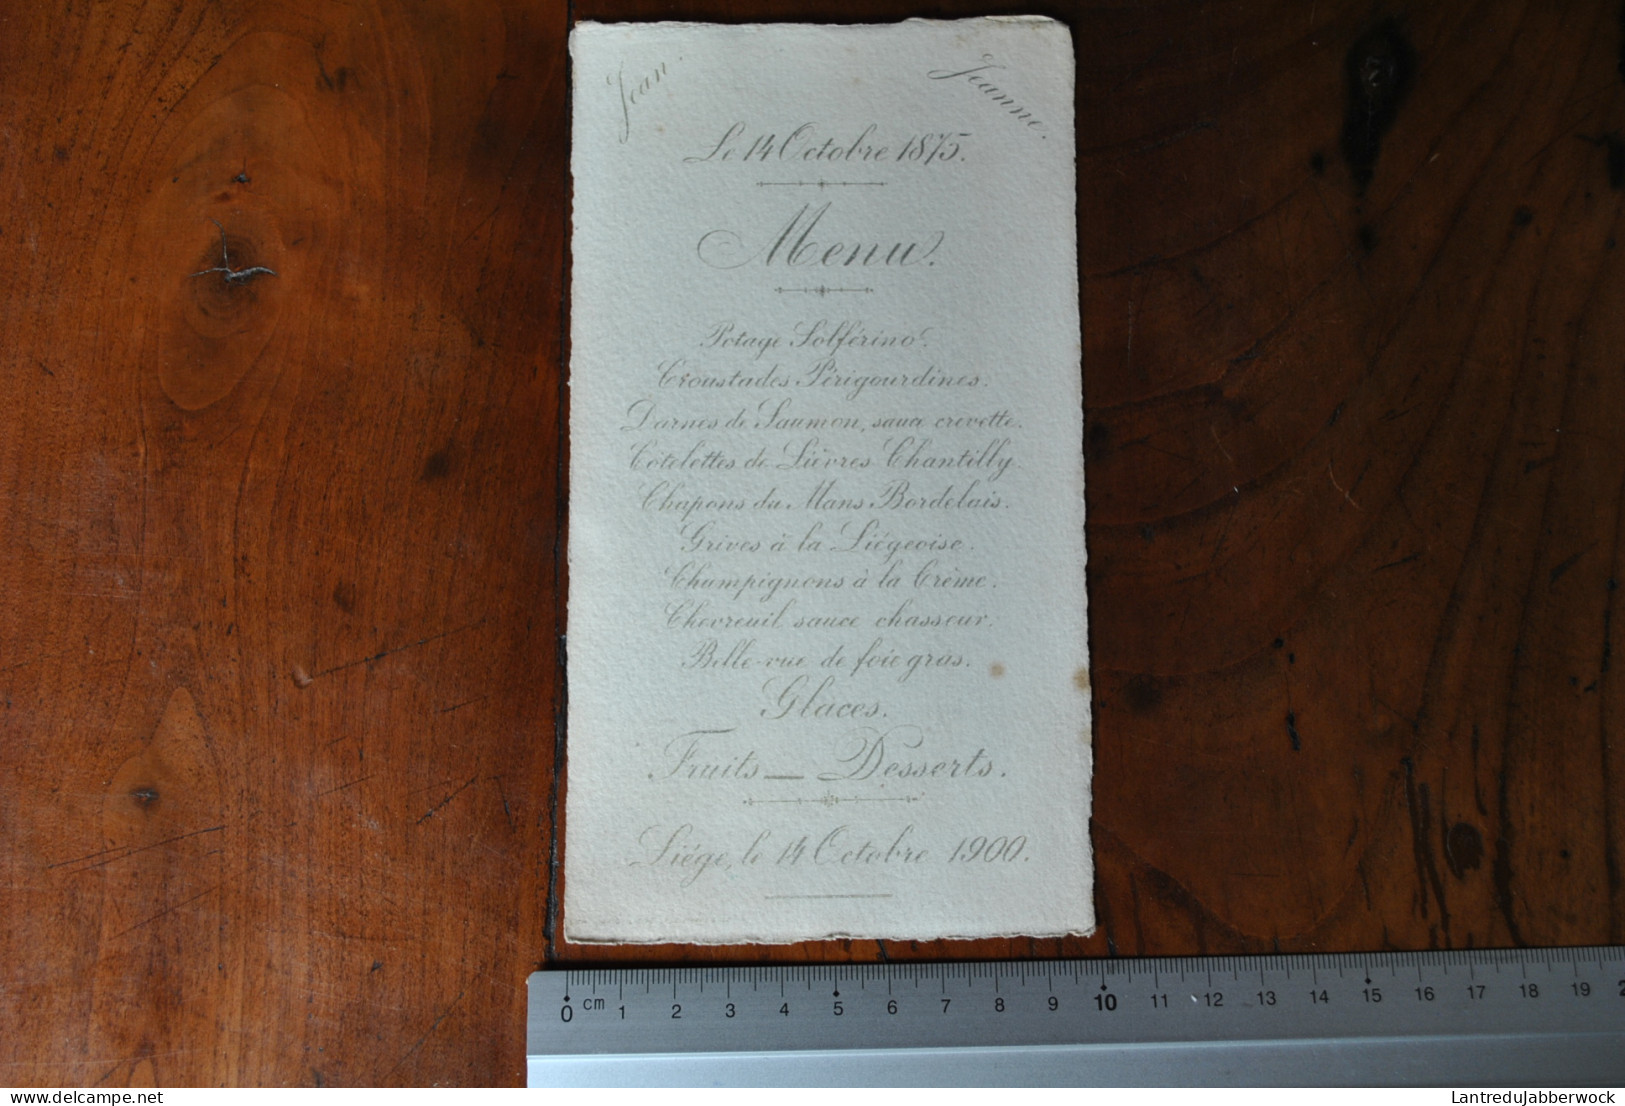 Jean.
Jeanne.
Le 14 Octobre 1875.
Menu.
Potage Solférino.
Croustades Périgourdines.
Darnes de Saumon, sauce crevette.
Côtelettes de Lièvres Chantilly.
Chapons du Mans Bordelais.
Grives à la Liégeoise.
Champignons à la Crème.
Chevreuil sauce chasseur.
Belle-vue de foie gras.
Glaces.
Fruits — Desserts.
Liége, le 14 Octobre 1900.
0 cm 1 2 3 4 5 6 7 8 9 10 11 12 13 14 15 16 17 18 19 2
delcampe.net
LantreduJabberwock